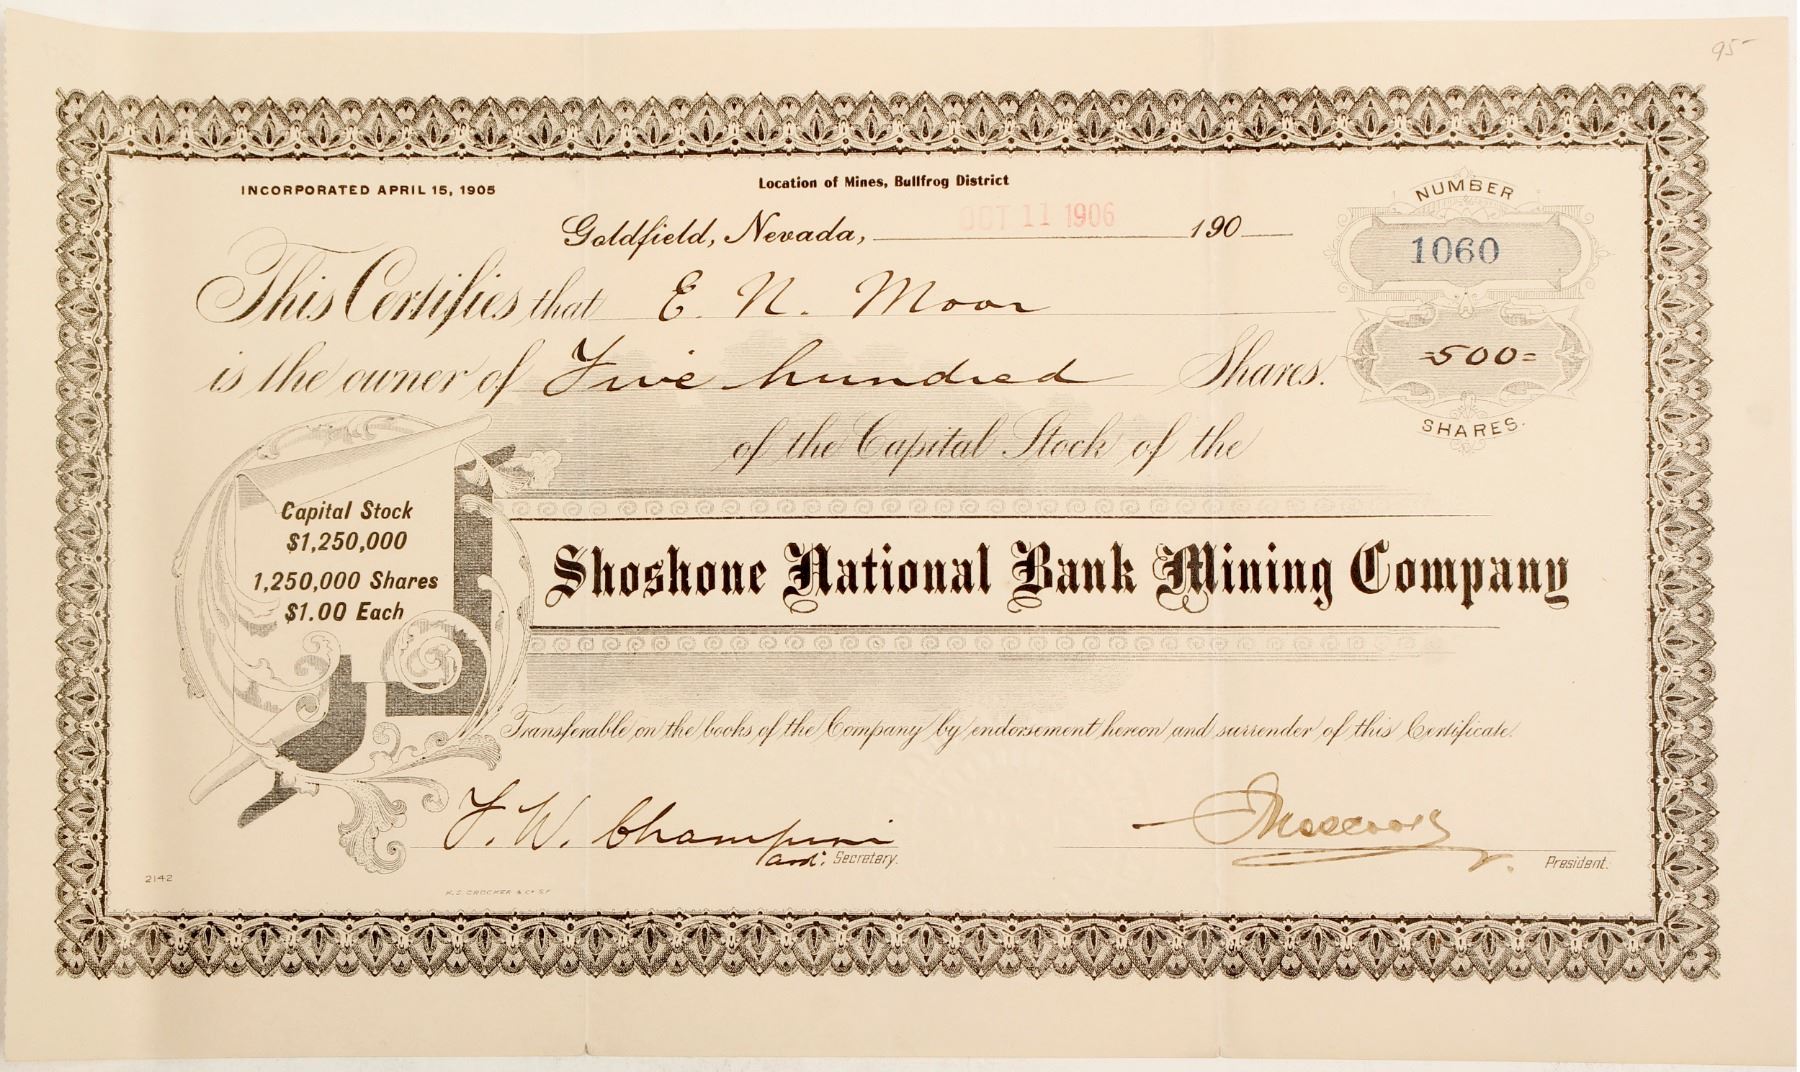 95-
INCORPORATED APRIL 15, 1905
Location of Mines, Bullfrog District
Goldfield, Nevada, OCT 11 1906 190
NUMBER
1060
This Certifies that E. N. Moor
is the owner of Five hundred Shares.
=500=
SHARES.
of the Capital Stock of the
Capital Stock
$1,250,000
1,250,000 Shares
$1.00 Each
Shoshone National Bank Mining Company
Transferable on the books of the Company by endorsement hereon and surrender of this Certificate.
Secretary.
President.
2142
H.S. CROCKER & CO S.F.